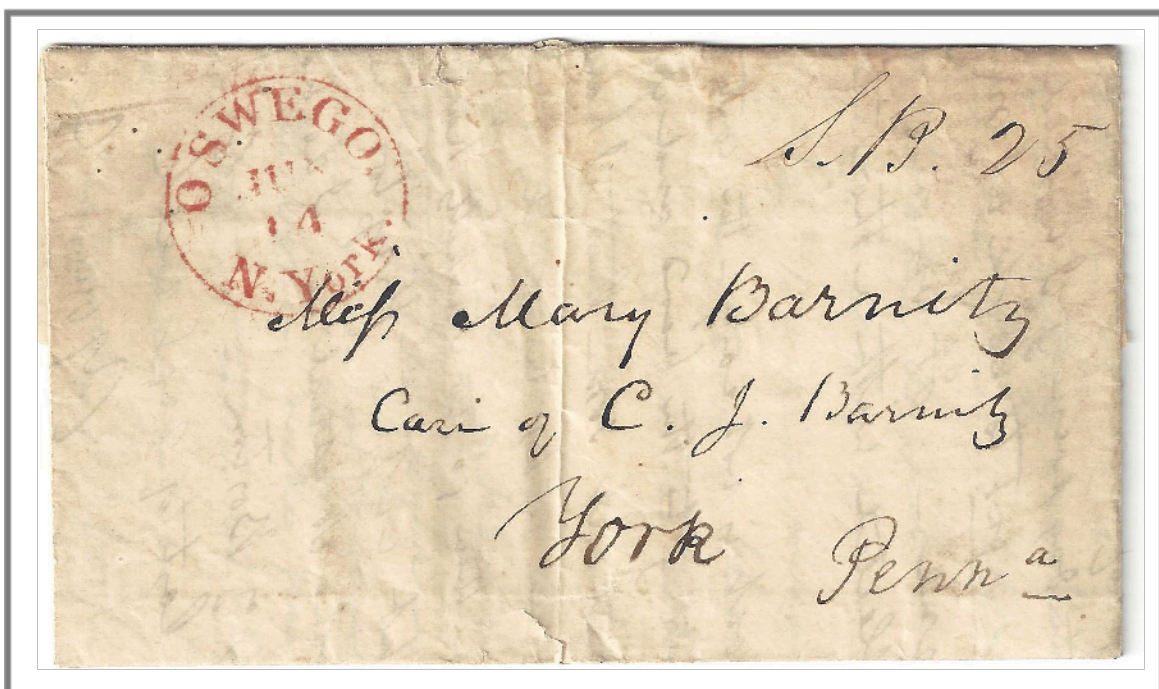 OSWEGO
14
N. York.
S. B. 25
Miss Mary Barnitz
Care of C. J. Barnitz
York Penn a